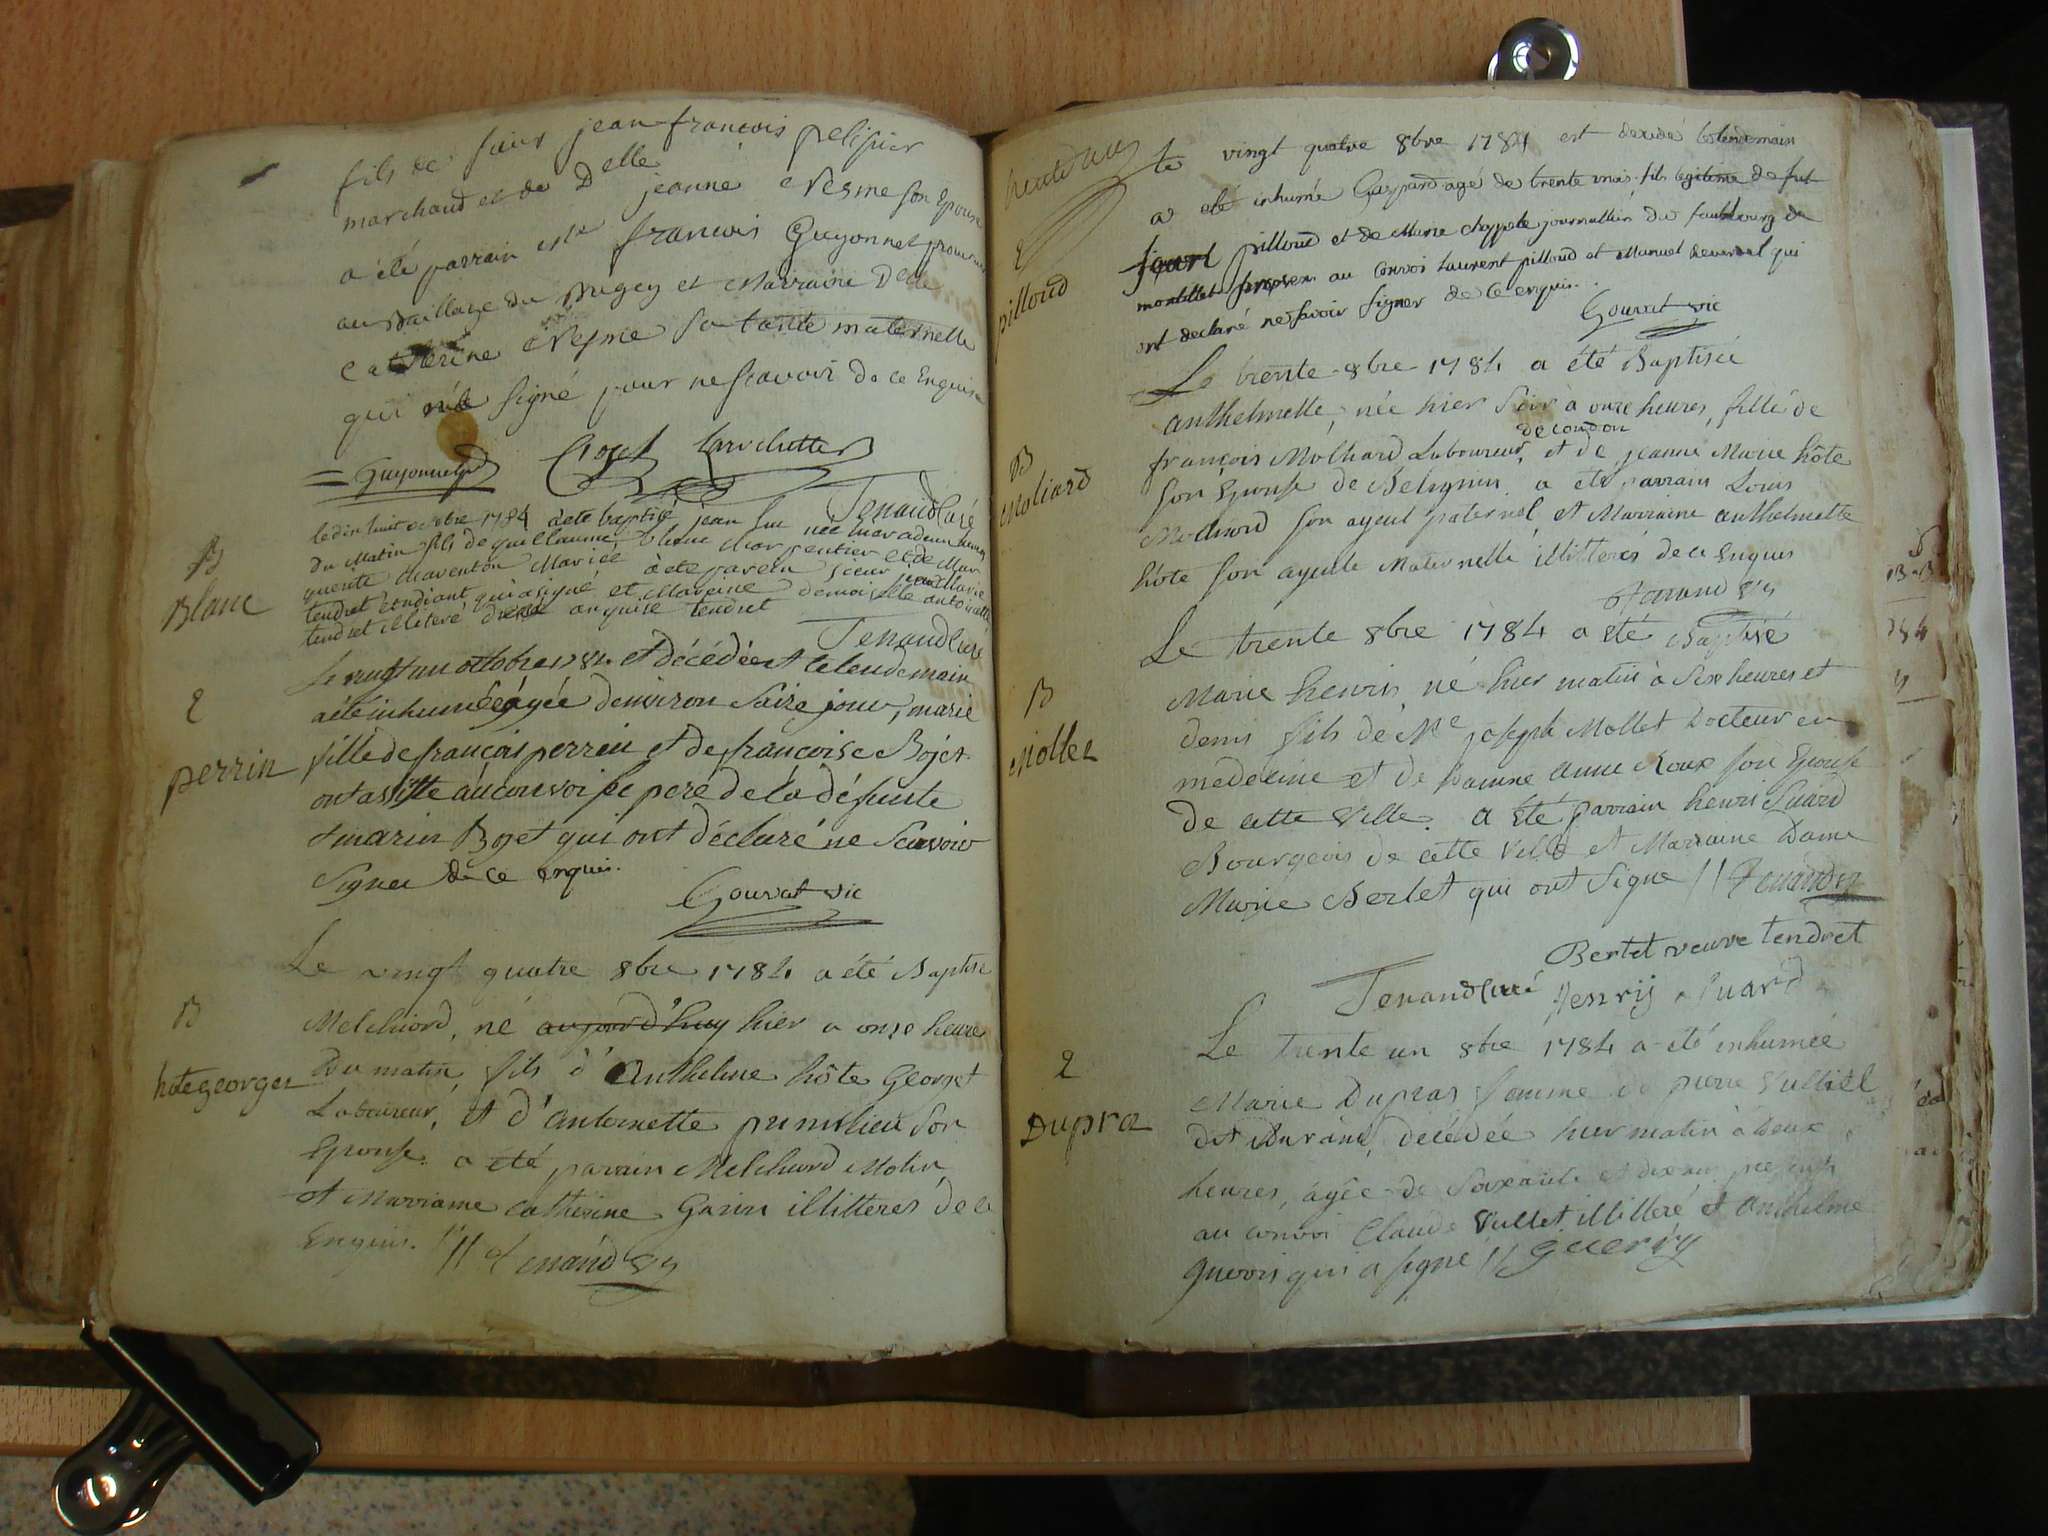 fils de sieur jean françois pelissier
marchand et de Delle jeanne Nesme son Epouse
a été parrain Mre francois Guyonnet procureur
au Baillage du Bugey et Marraine Delle
Catherine Nesme sa tante maternelle
qui n'a signé pour ne scavoir de ce Enquise
Guyonnet Crozet
Tenand curé
B
Blanc
le dix huit octobre 1784 a été baptisé jean luc née hier a deux heures
du Matin fils de guillaume blanc charpentier et de Mar
guerite Charenton Mariée a été parein sieur jean Marie
tendret étudiant qui a signé et Mareine demoiselle antoinette
tendret illiteré de ce anquise tendret
Tenand curé
2
perrin
Le vingt un octobre 1784 et décédée et le lendemain
a été inhumée agée demviron saize jour, marie
fille de françois perrin et de francoise Bojet
ont assisté au convoi le peré de la défunte
et marin Bojet qui ont déclaré ne scavoir
signer de ce enquis.
Gouvat vic
B
hôte georges
Le vingt quatre 8bre 1784 a été Baptisé
Melchiord, né aujourd'huy hier a onze heures
Du matin, fils d'Anthelme hôte Georget
Laboureur, et d'antoinette premilieu son
Epouse. a été parrain Melchiord Molin
et Marraine Catherine Garin illitterés de ce
Enquis. // Tenand
2
pilloud
le vingt quatre 8bre 1784 est decedé et le lendemain
a eté inhumé Gaspard agé de trente mois fils legitime de fut
pilloud et de Marie chappele journallier du faubourg de
presens au convoi Laurent pilloud et Manuel qui
ont declaré ne savoir signer de ce enquis.
Gouvat vic
B
Moliard
Le trente 8bre 1784 a été Baptisée
Anthelmette, née hier soir à onze heures, fille de
de condon
françois Molliard Laboureur, et de jeanne Marie hôte
son Epouse de Belignin. a été parrain Louis
Molliard son ayeul paternel et Marraine anthelmette
hôte son ayeule Maternelle illitterés de ce Enquis
Tenand
B
Mollet
Le trente 8bre 1784 a été Baptisé
Marie henris né hier matin à six heures et
demi fils de Me joseph Mollet Docteur en
medecine et de Damme anne Roux son Epouse
de cette Ville. a été parrain henri Suard
Bourgeois de cette ville et Marraine Dame
Marie Bertet qui ont Signé // Tenand
Bertet veuve tendret
Tenand curé henrij Suard
2
Dupra
Le trente un 8bre 1784 a été inhumée
Marie Dupras femme de pierre Vulliet
dit Durand, decédée hier matin à deux
heures, agée de soixante et dix ans presents
au convoi Claude Vulliet illitteré et Anthelme
Guerris qui a signé // Guerÿ